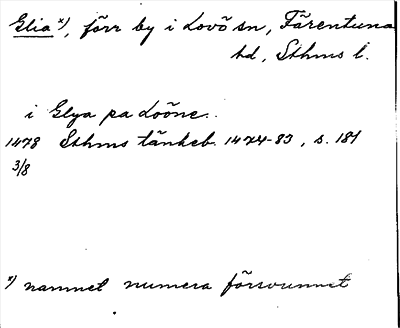 Glia x), förr by i Lovö sn, Färentuna
hd, Sthms l.
i Glya pa Loöne.
1478 Sthms tänkeb. 1474-83, s. 181
3/8
x) namnet numera försvunnet